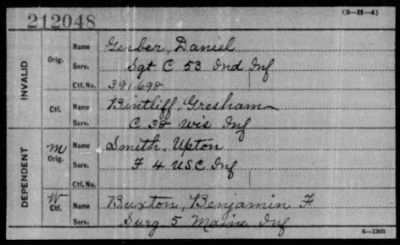 212048
(3-H-4)
INVALID
Orig. Name Gerber, Daniel
Serv. Sgt C 53 Ind Inf
Ctf. No. 391698
Ctf. Name Bintliff, Gresham
Serv. C 38 Wis Inf
DEPENDENT
M Orig. Name Smith, Upton
Serv. F 4 USC Inf
Ctf. No.
W Ctf. Name Buxton, Benjamin F
Serv. Surg 5 Maine Inf